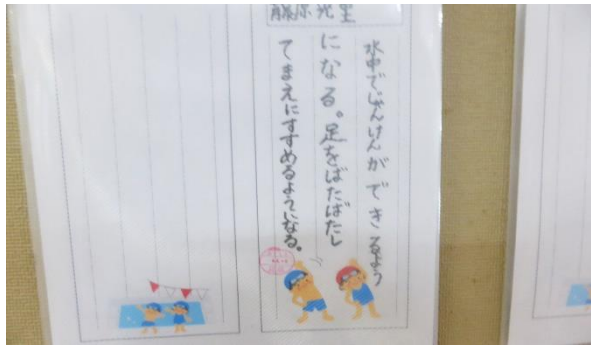 藤原先生
水中でじゃんけんができるよう
になる。足をばたばたし
てまえにすすめるようになる。